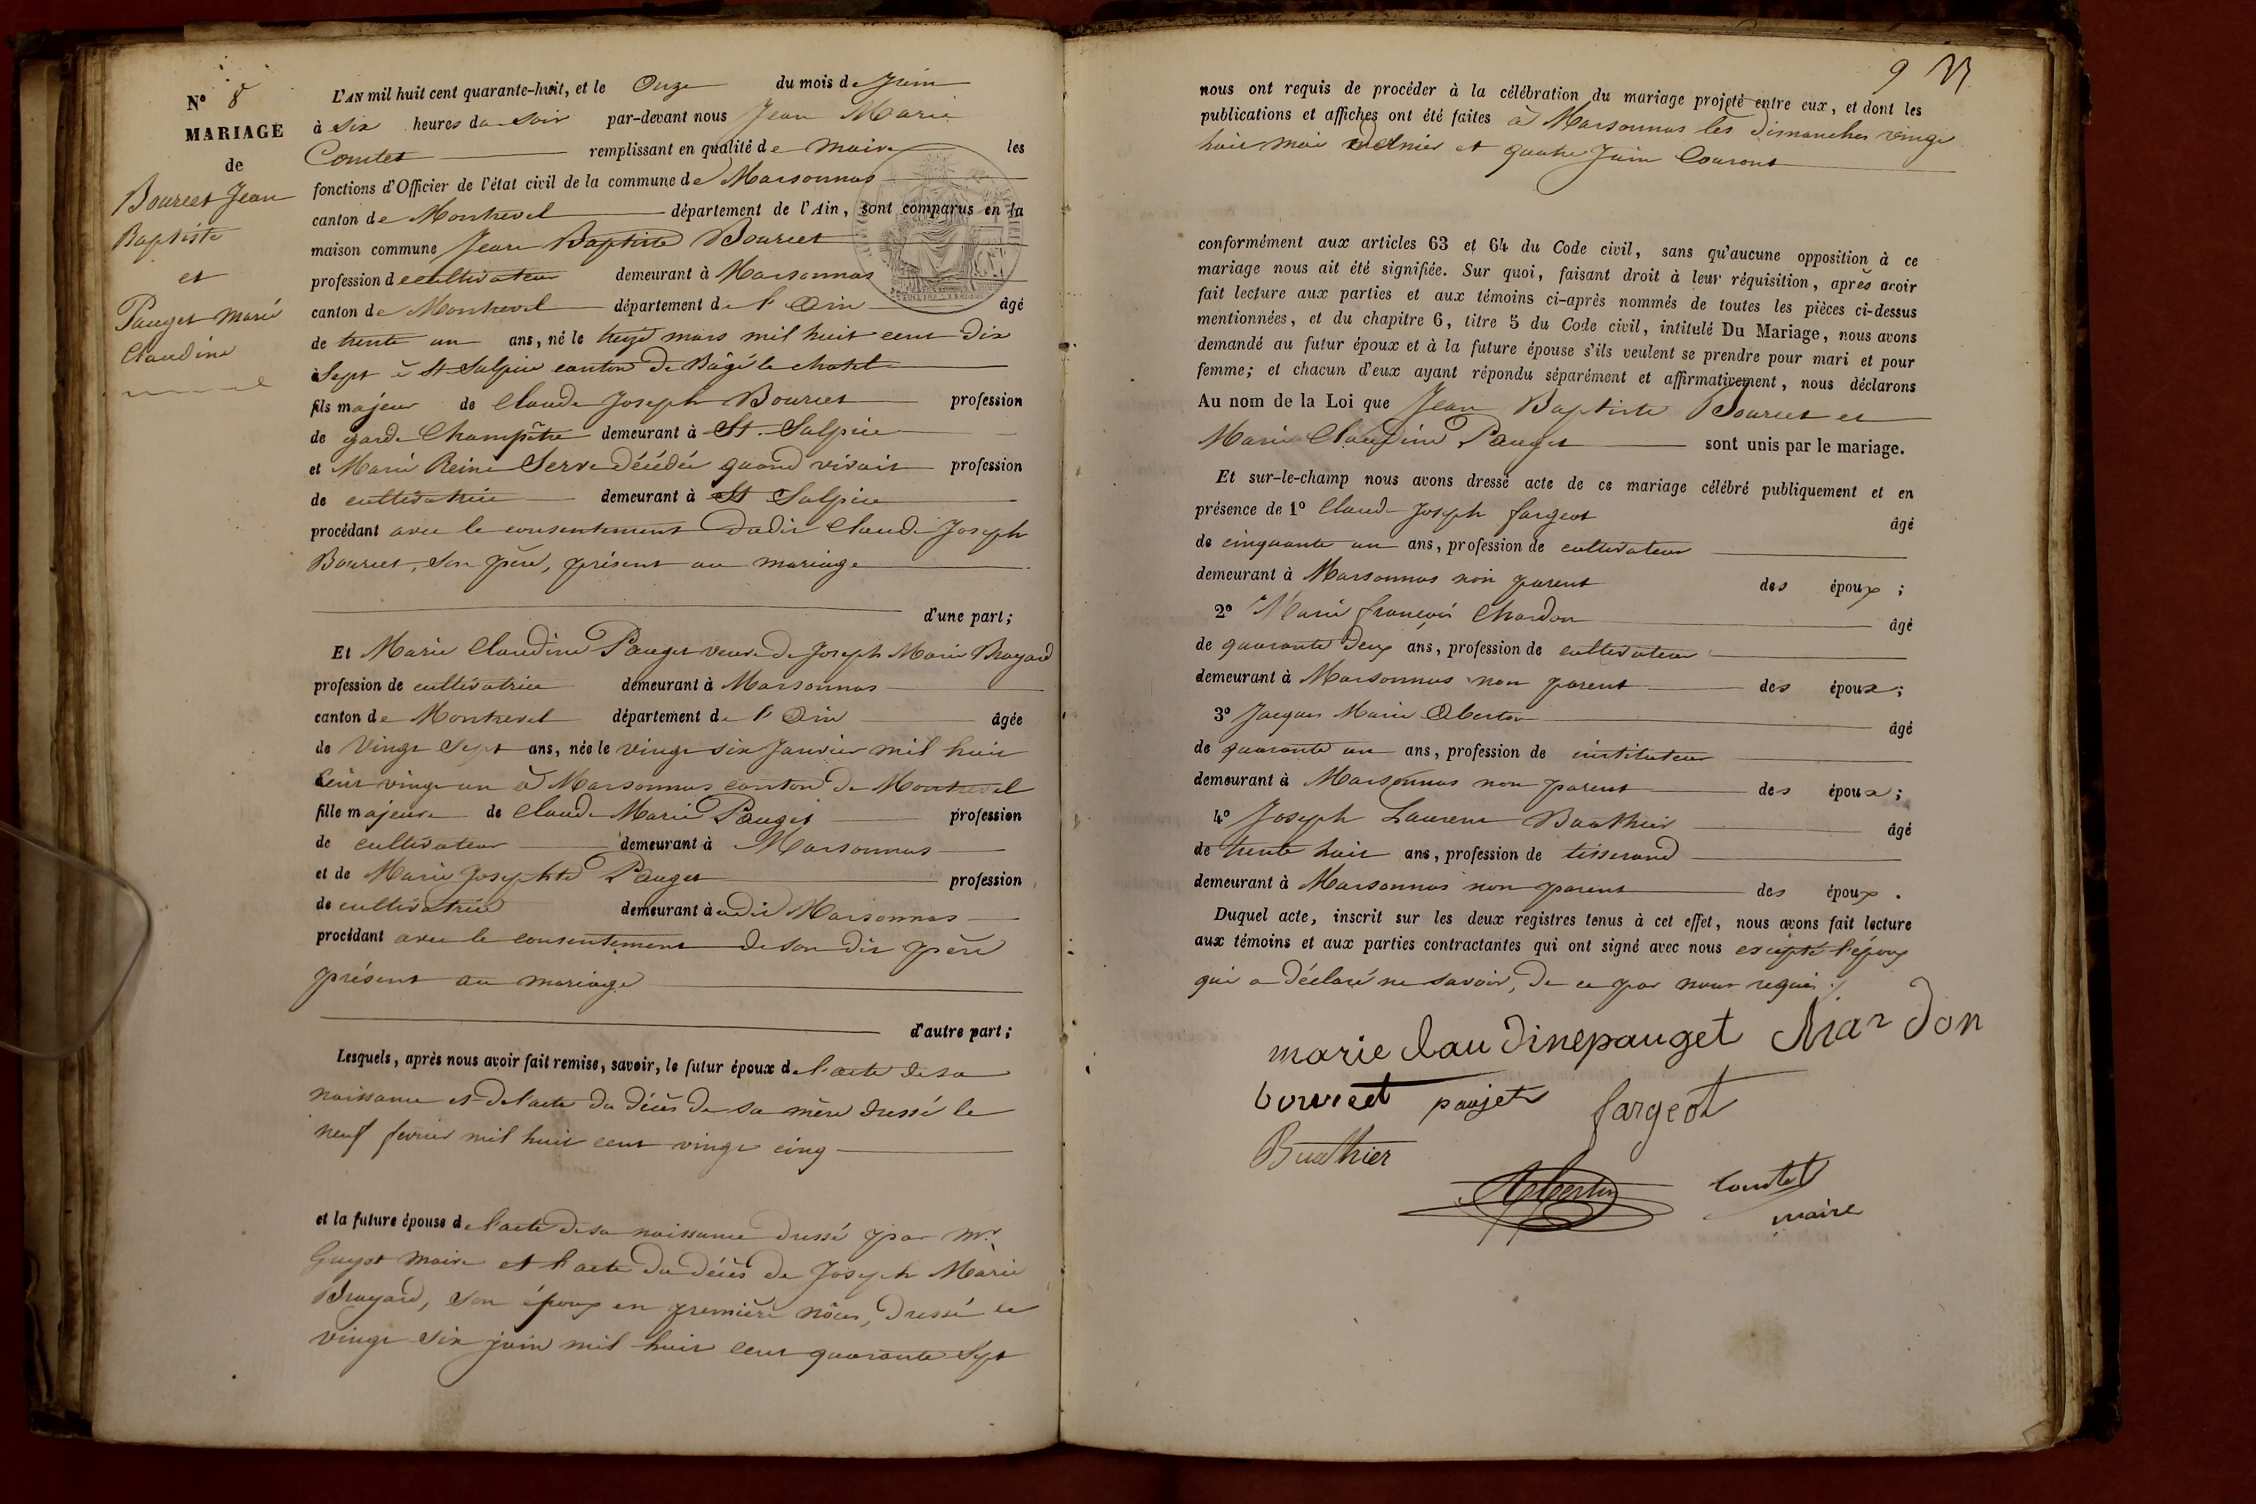 N° 8
MARIAGE
de
Bourcet Jean
Baptiste
et
Pauget Marie
Claudine
L'AN mil huit cent quarante-huit, et le Onze du mois de Juin
à Six heures du Soir par-devant nous Jean Marie
Comtet remplissant en qualité de Maire les
fonctions d'Officier de l'état civil de la commune de Marsonnas
canton de Montrevel département de l'Ain, sont comparus en la
maison commune Jean Baptiste Bourcet
profession de cultivateur demeurant à Marsonnas
canton de Montrevel département de l'Ain âgé
de trente un ans, né le treize mars mil huit cent dix
Sept à St Sulpice canton de Bâgé le chatel
fils majeur de Claude Joseph Bourcet profession
de garde Champêtre demeurant à St. Sulpice
et Marie Reine Serve Décédée quand vivait profession
de cultivatrice demeurant à St Sulpice
procédant avec le consentement dudit Claude Joseph
Bourcet, son père, présent au mariage
d'une part;
Et Marie Claudine Pauget veuve de Joseph Marie Brayard
profession de cultivatrice demeurant à Marsonnas
canton de Montrevel département de l'Ain âgée
de Vingt Sept ans, née le vingt six Janvier mil huit
Cent vingt un à Marsonnas canton de Montrevel
fille majeure de Claude Marie Pauget profession
de cultivateur demeurant à Marsonnas
et de Marie Josephte Pauget profession
de cultivatrice demeurant à udit Marsonnas
procédant avec le consentement de son dit père
présent au mariage
d'autre part;
Lesquels, après nous avoir fait remise, savoir, le futur époux de l'acte de sa
naissance et de l'acte du décès de sa mère dressé le
neuf fevrier mil huit cent vingt cinq
et la future épouse de l'acte de sa naissance dressé par Mr
Guyot Maire et l'acte du décès de Joseph Marie
Brayard, son époux en première nôces, Dressé le
vingt six juin mil huit cent quarante Sept
9
nous ont requis de procéder à la célébration du mariage projeté entre eux, et dont les
publications et affiches ont été faites à Marsonnas les Dimanches vingt
huit mai dernier et quatre Juin Courant
conformément aux articles 63 et 64 du Code civil, sans qu'aucune opposition à ce
mariage nous ait été signifiée. Sur quoi, faisant droit à leur réquisition, après avoir
fait lecture aux parties et aux témoins ci-après nommés de toutes les pièces ci-dessus
mentionnées, et du chapitre 6, titre 5 du Code civil, intitulé Du Mariage, nous avons
demandé au futur époux et à la future épouse s'ils veulent se prendre pour mari et pour
femme; et chacun d'eux ayant répondu séparément et affirmativement, nous déclarons
Au nom de la Loi que Jean Baptiste Bourcet et
Marie Claudine Pauget sont unis par le mariage.
Et sur-le-champ nous avons dressé acte de ce mariage célébré publiquement et en
présence de 1° Claude Joseph fargeot âgé
de cinquante un ans, profession de cultivateur
demeurant à Marsonnas non parent des époux;
2° Marie françois Chardon âgé
de quarante Deux ans, profession de cultivateur
demeurant à Marsonnas non parent des époux;
3° Jacques Marie Alberton âgé
de quarante un ans, profession de instituteur
demeurant à Marsonnas non parent des époux;
4° Joseph Laurent Buathier âgé
de trente huit ans, profession de tisserand
demeurant à Marsonnas non parent des époux.
Duquel acte, inscrit sur les deux registres tenus à cet effet, nous avons fait lecture
aux témoins et aux parties contractantes qui ont signé avec nous excepté l'époux
qui a déclaré ne savoir, de ce par nous requis
marie claudinepauget Chardon
bourcet paujet fargeot
Buathier
Comtet
maire